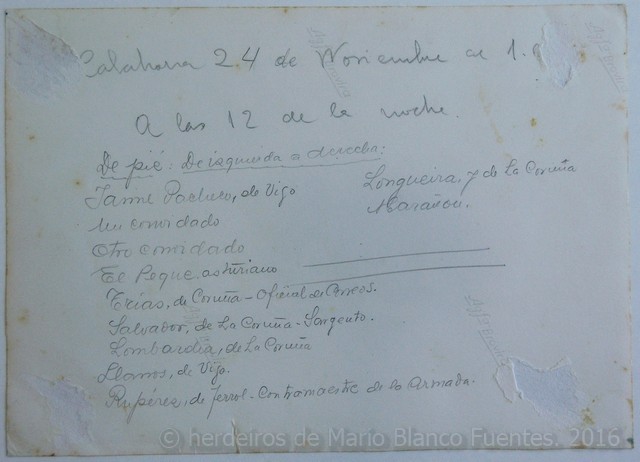 Calahorra 24 de Noviembre de 1.9
A las 12 de la noche.
De pié: De izquierda a derecha:
Jaime Pacheco, de Vigo
Un convidado
Otro convidado
El Peque, asturiano
Frías, de Coruña - Oficial de Correos.
Salvador, de La Coruña - Sargento.
Lombardía, de La Coruña
Llamos, de Vigo.
Rupérez, de Ferrol - Contramaestre de la Armada.
Longueira, y de La Coruña
Marañón.
Agfa-Brovira
Agfa-Brovira
Agfa-Brovira
© herdeiros de Mario Blanco Fuentes. 2016